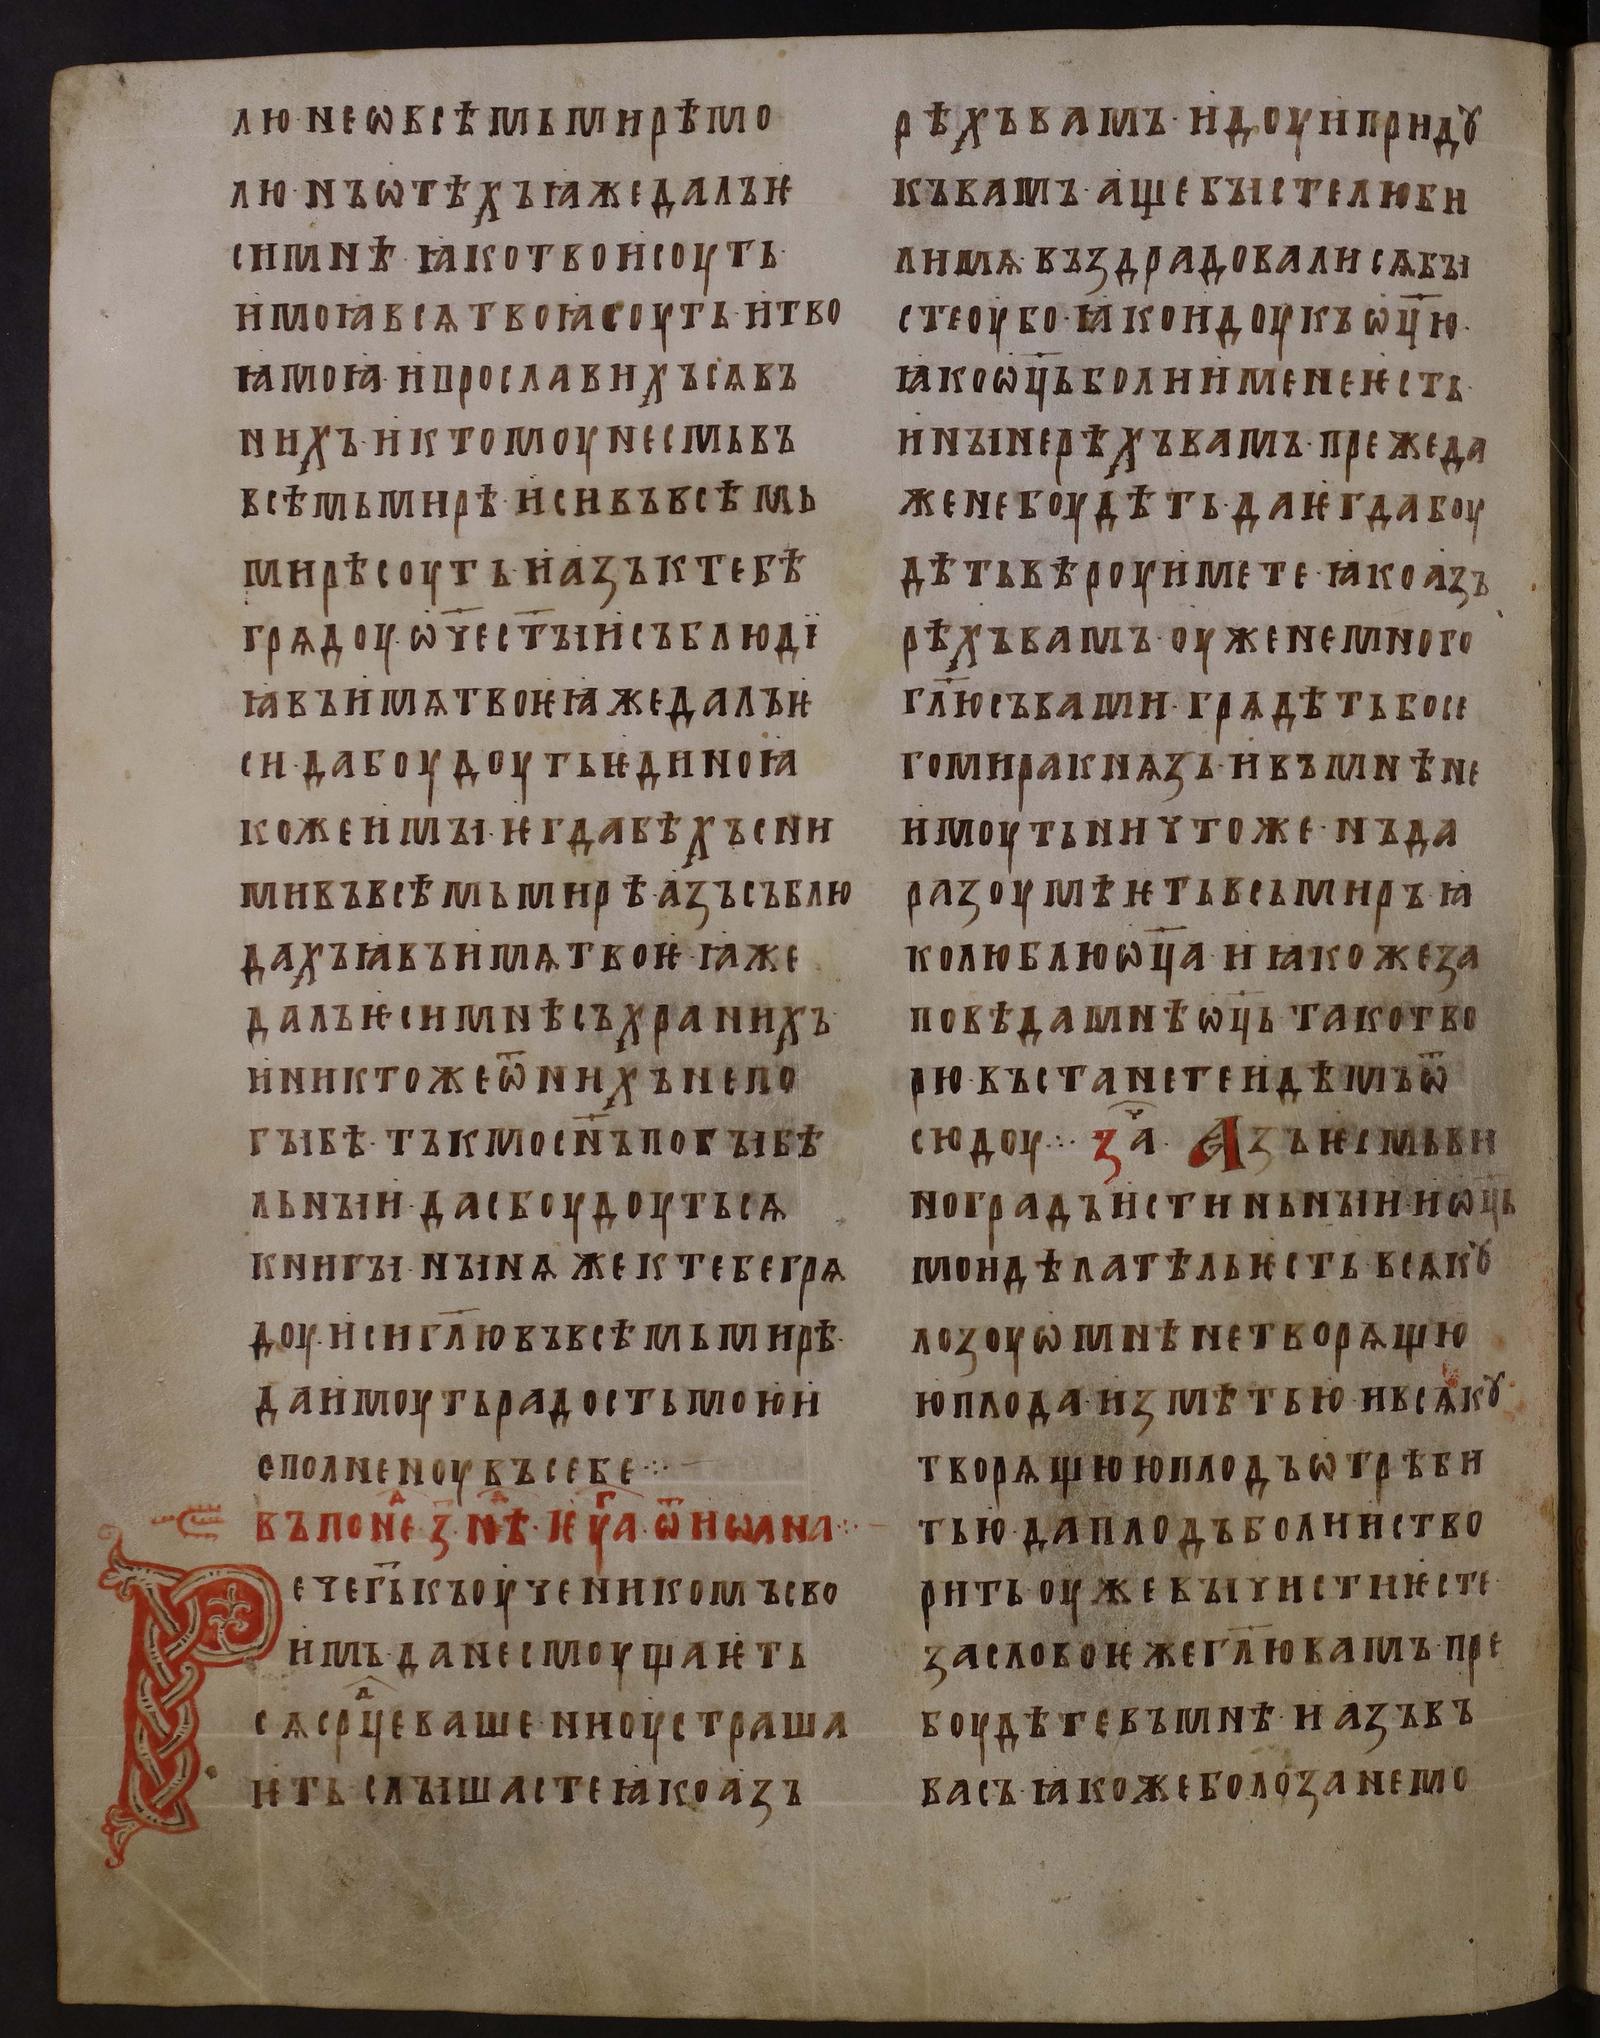 лю·не ѡ всѣмь мирѣ мо
лю·нъ ѡ тѣхъ ꙗже далъ ѥ
си мнѣ· ꙗко твои соуть·
и моꙗ всѧ твоꙗ соуть· и тво
ꙗ моꙗ· и прославихъсѧ въ
нихъ· и к томоу несмь въ
всѣмь мирѣ· и си въ всѣмь
мирѣ соуть· и азъ к тебѣ
грѧдоу· ѡч҃е ст҃ыи съблюдї
ꙗ въ имѧ твоѥ ꙗже далъ ѥ
си· да боудоуть ѥдино ꙗ
коже и мы· ѥгда бѣхъ с ни
ми въ всѣмь мирѣ· азъ съблю
дахъ ꙗ въ имѧ твоѥ· ꙗже
далъ ѥси мнѣ съхранихъ·
и никтоже ѿ нихъ не по
гыбѣ· тъкмо сн҃ъ погыбѣ
льныи· да сбоудоутьсѧ
книгы· нынѧ же к тебе грѧ
доу· и си гл҃ю въ всѣмь мирѣ·
да имоуть радость мою и
сполнено у въ себе ⁘
въ понеⷣ·з҃·нⷣѣ· ѥуⷢ҇а· ѿ иѡана ⁘
Рече г҃ь къ оученикомъ сво
имъ· да не смоущаѥть
сѧ срⷣце ваше· ни оустраша
ѥть· слышасте ꙗко азъ
рѣхъ вамъ· идоу и придꙋ
къ вамъ· аще бысте люби
ли мѧ· въздрадовали сѧ бы
сте оубо· ꙗко идоу къ ѡц҃ю·
ꙗко ѡц҃ь болии мене ѥсть·
и ныне рѣхъ вамъ· преже да
же не боудѣть· да ѥгда боу
дѣть вѣроу имете· ꙗко азъ
рѣхъ вамъ· оуже не много
гл҃ю съ вами· грѧдѣть бо се
го мира кнѧзь· и въ мнѣ не
имоуть ничтоже· нъ да
разоумѣѥть всь миръ· ꙗ
ко люблю ѡц҃а· и ꙗкоже за
повѣда мнѣ ѡц҃ь тако тво
рю· въстанете идѣмъ ѿ
сюдоу ⁘ заⷱ҇· Азъ ѥсмь ви
ноградъ истиньныи· и ѡц҃ь
мои дѣлатѣль ѥсть· всѧкꙋ
лозоу ѡ мнѣ не творѧщю
ю плода· измѣть ю· и всѧкꙋ
творѧщюю плодъ ѡтрѣби
ть ю· да плодъ болии ство
рить· оуже вы чисти ѥсте·
за слово ѥже гл҃ю вамъ· пре
боудѣте въ мнѣ· и азъ въ
васъ· ꙗкоже бо лоза не мо